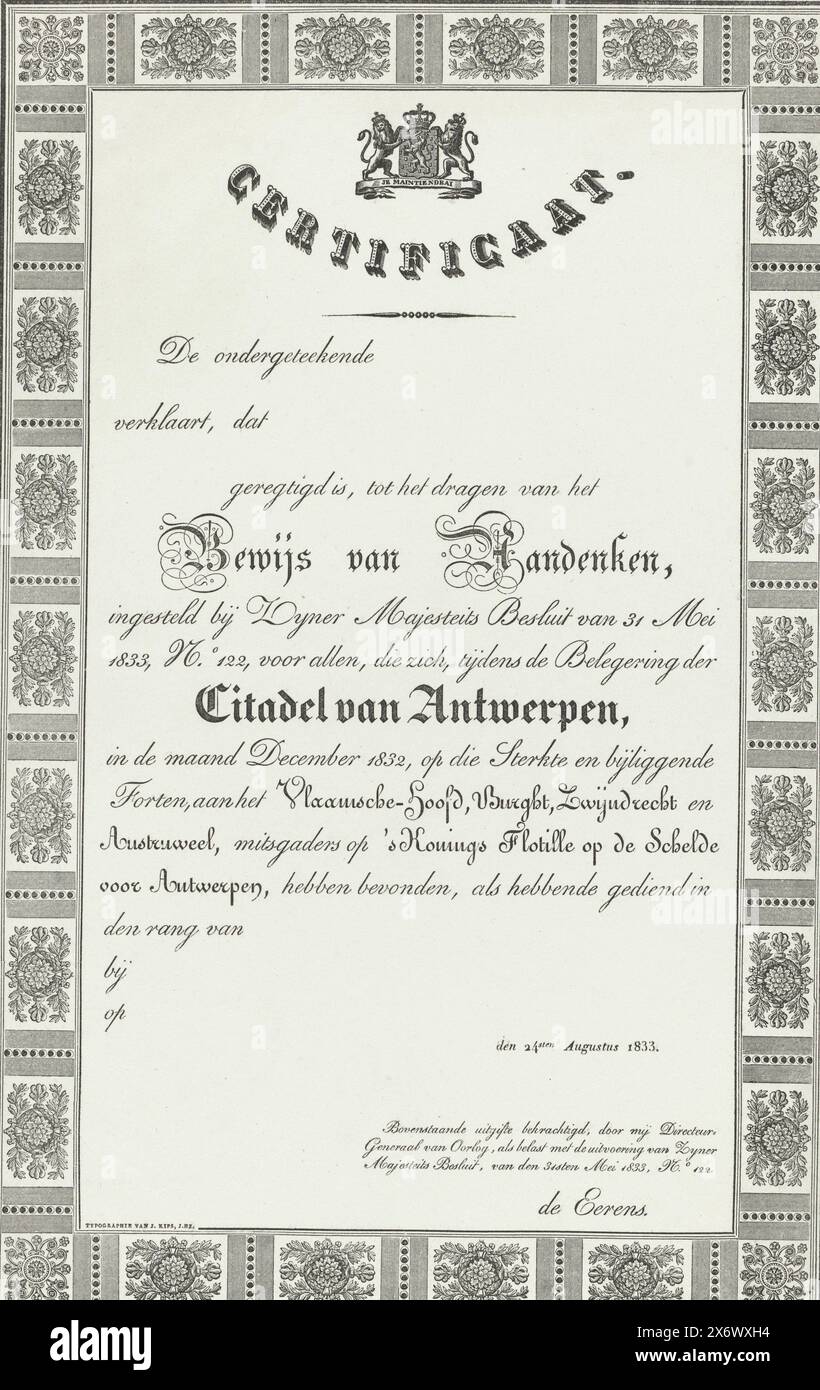 JE MAINTIENDRAI
CERTIFICAAT.
De ondergeteekende
verklaart, dat
geregtigd is, tot het dragen van het
Bewijs van Aandenken,
ingesteld bij Zyner Majesteits Besluit van 31 Mei
1833, N.º 122, voor allen, die zich, tijdens de Belegering der
Citadel van Antwerpen,
in de maand December 1832, op die Sterkte en bijliggende
Forten, aan het Vlaamsche-Hoofd, Burght, Zwijndrecht en
Austruweel, mitsgaders op 's Konings Flotille op de Schelde
voor Antwerpen, hebben bevonden, als hebbende gediend in
den rang van
bij
op
den 24sten Augustus 1833.
Bovenstaande uitgifte bekrachtigd, door mij Directeur-
Generaal van Oorlog, als belast met de uitvoering van Zyner
Majesteits Besluit, van den 31sten Mei 1833, N.º 122
de Eerens.
TYPOGRAPHIE VAN J. KIPS, J.HZ.
alamy
Image ID: 2X6WXH4
www.alamy.com